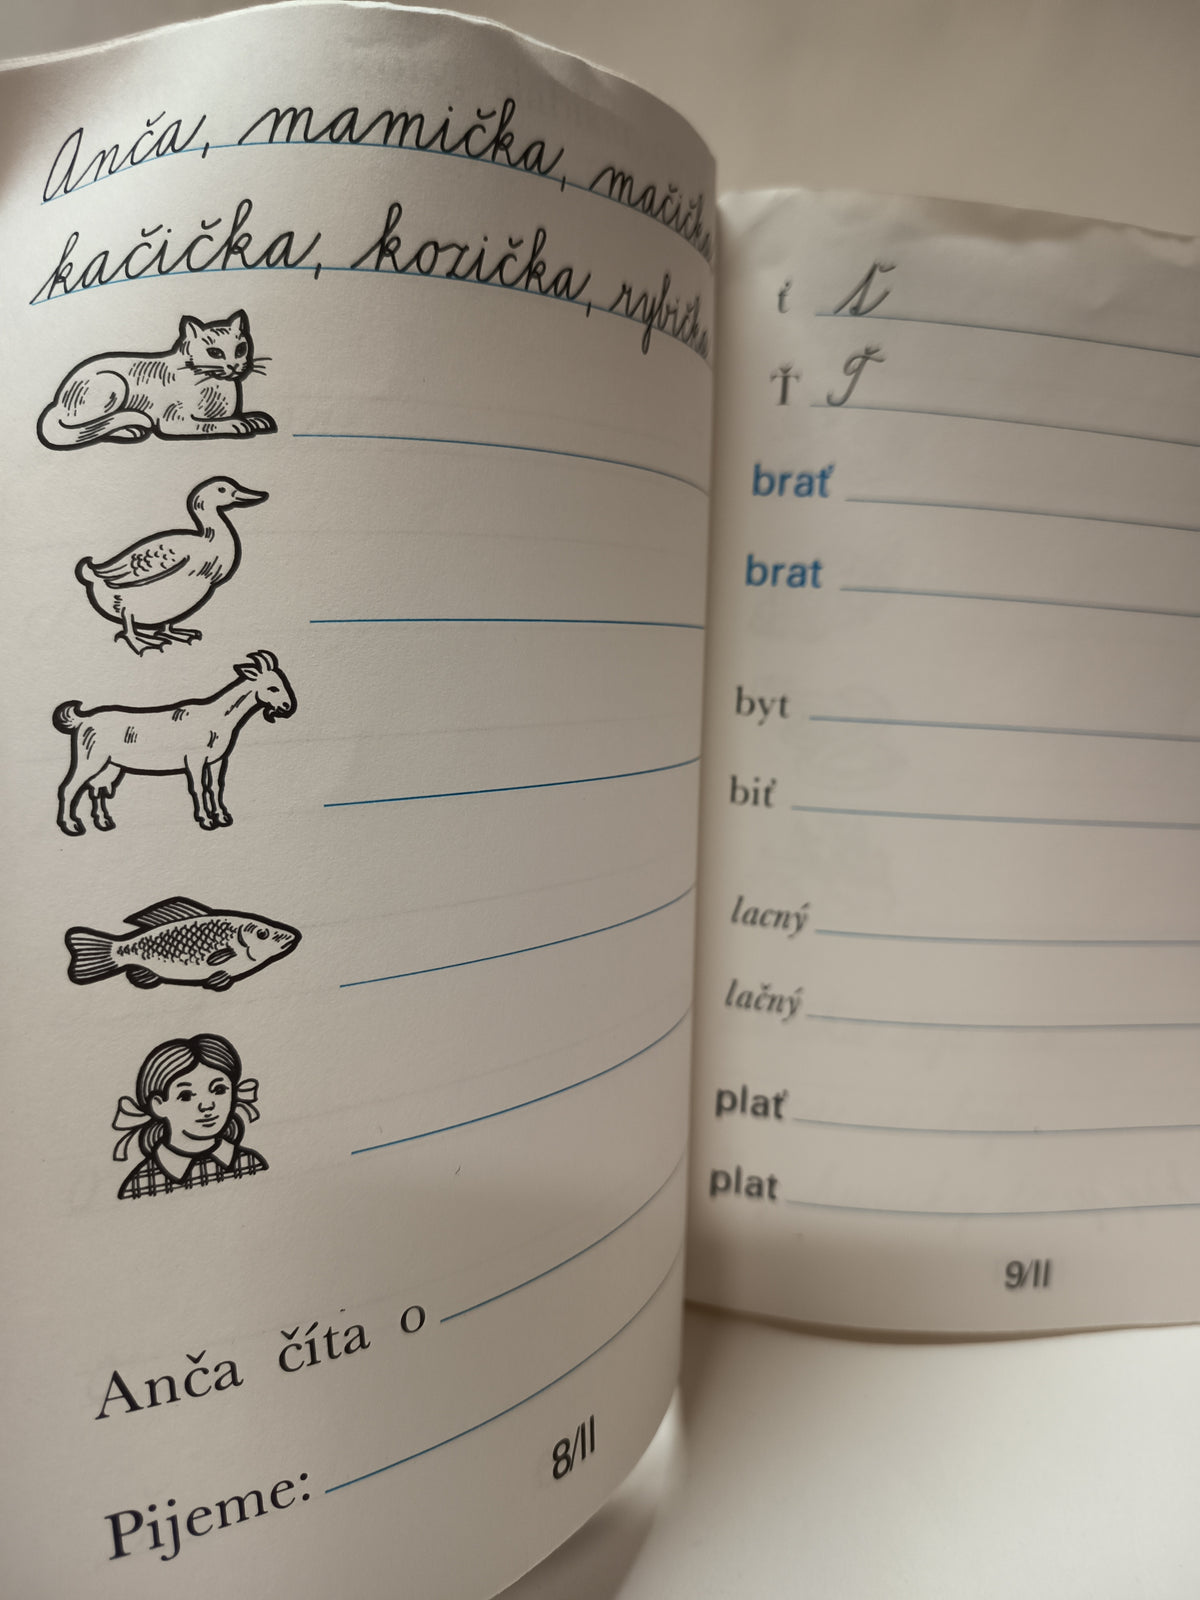 Anča, mamička, mačička
kačička, kozička, rybička
Anča číta o
Pijeme:
8/II
ť ť
Ť Ť
brať
brat
byt
biť
lacný
lačný
plať
plat
9/II